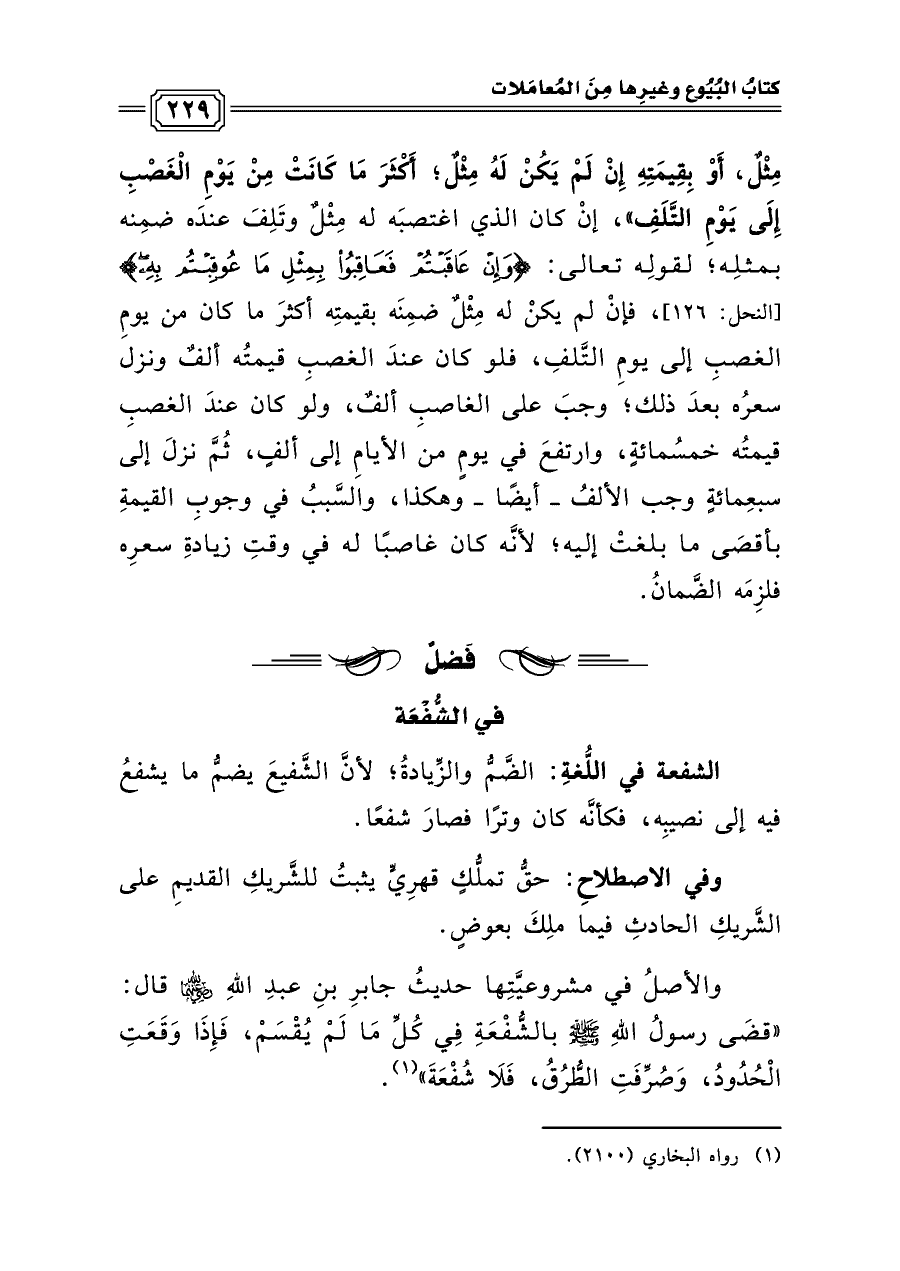 كتابُ البُيُوع وغيرِها مِنَ المُعامَلات
٢٢٩
مِثْلٌ، أَوْ بِقِيمَتِهِ إِنْ لَمْ يَكُنْ لَهُ مِثْلٌ؛ أَكْثَرَ مَا كَانَتْ مِنْ يَوْمِ الْغَصْبِ
إِلَى يَوْمِ التَّلَفِ»، إنْ كان الذي اغتصبَه له مِثْلٌ وتَلِفَ عندَه ضمِنه
بمثلِه؛ لقولِه تعالى: ﴿وَإِنْ عَاقَبْتُمْ فَعَاقِبُوا۟ بِمِثْلِ مَا عُوقِبْتُم بِهِۦۖ﴾
[النحل: ١٢٦]، فإنْ لم يكنْ له مِثْلٌ ضمِنَه بقيمتِه أكثرَ ما كان من يومِ
الغصبِ إلى يومِ التَّلفِ، فلو كان عندَ الغصبِ قيمتُه ألفٌ ونزل
سعرُه بعدَ ذلك؛ وجبَ على الغاصبِ ألفٌ، ولو كان عندَ الغصبِ
قيمتُه خمسُمائةٍ، وارتفعَ في يومٍ من الأيامِ إلى ألفٍ، ثُمَّ نزلَ إلى
سبعِمائةٍ وجب الألفُ ـ أيضًا ـ وهكذا، والسَّببُ في وجوبِ القيمةِ
بأقصَى ما بلغتْ إليه؛ لأنَّه كان غاصبًا له في وقتِ زيادةِ سعرِه
فلزِمَه الضَّمانُ.
فَصْلٌ
في الشُّفْعَة
الشفعة في اللُّغةِ: الضَّمُّ والزِّيادةُ؛ لأنَّ الشَّفيعَ يضمُّ ما يشفعُ
فيه إلى نصيبِه، فكأنَّه كان وترًا فصارَ شفعًا.
وفي الاصطلاحِ: حقُّ تملُّكٍ قهرِيٍّ يثبتُ للشَّريكِ القديمِ على
الشَّريكِ الحادثِ فيما ملِكَ بعوضٍ.
والأصلُ في مشروعيَّتِها حديثُ جابرِ بنِ عبدِ اللهِ رضي الله عنهما قال:
«قضَى رسولُ اللهِ ﷺ بالشُّفْعَةِ فِي كُلِّ مَا لَمْ يُقْسَمْ، فَإِذَا وَقَعَتِ
الْحُدُودُ، وَصُرِّفَتِ الطُّرُقُ، فَلَا شُفْعَةَ»(١).
(١) رواه البخاري (٢١٠٠).